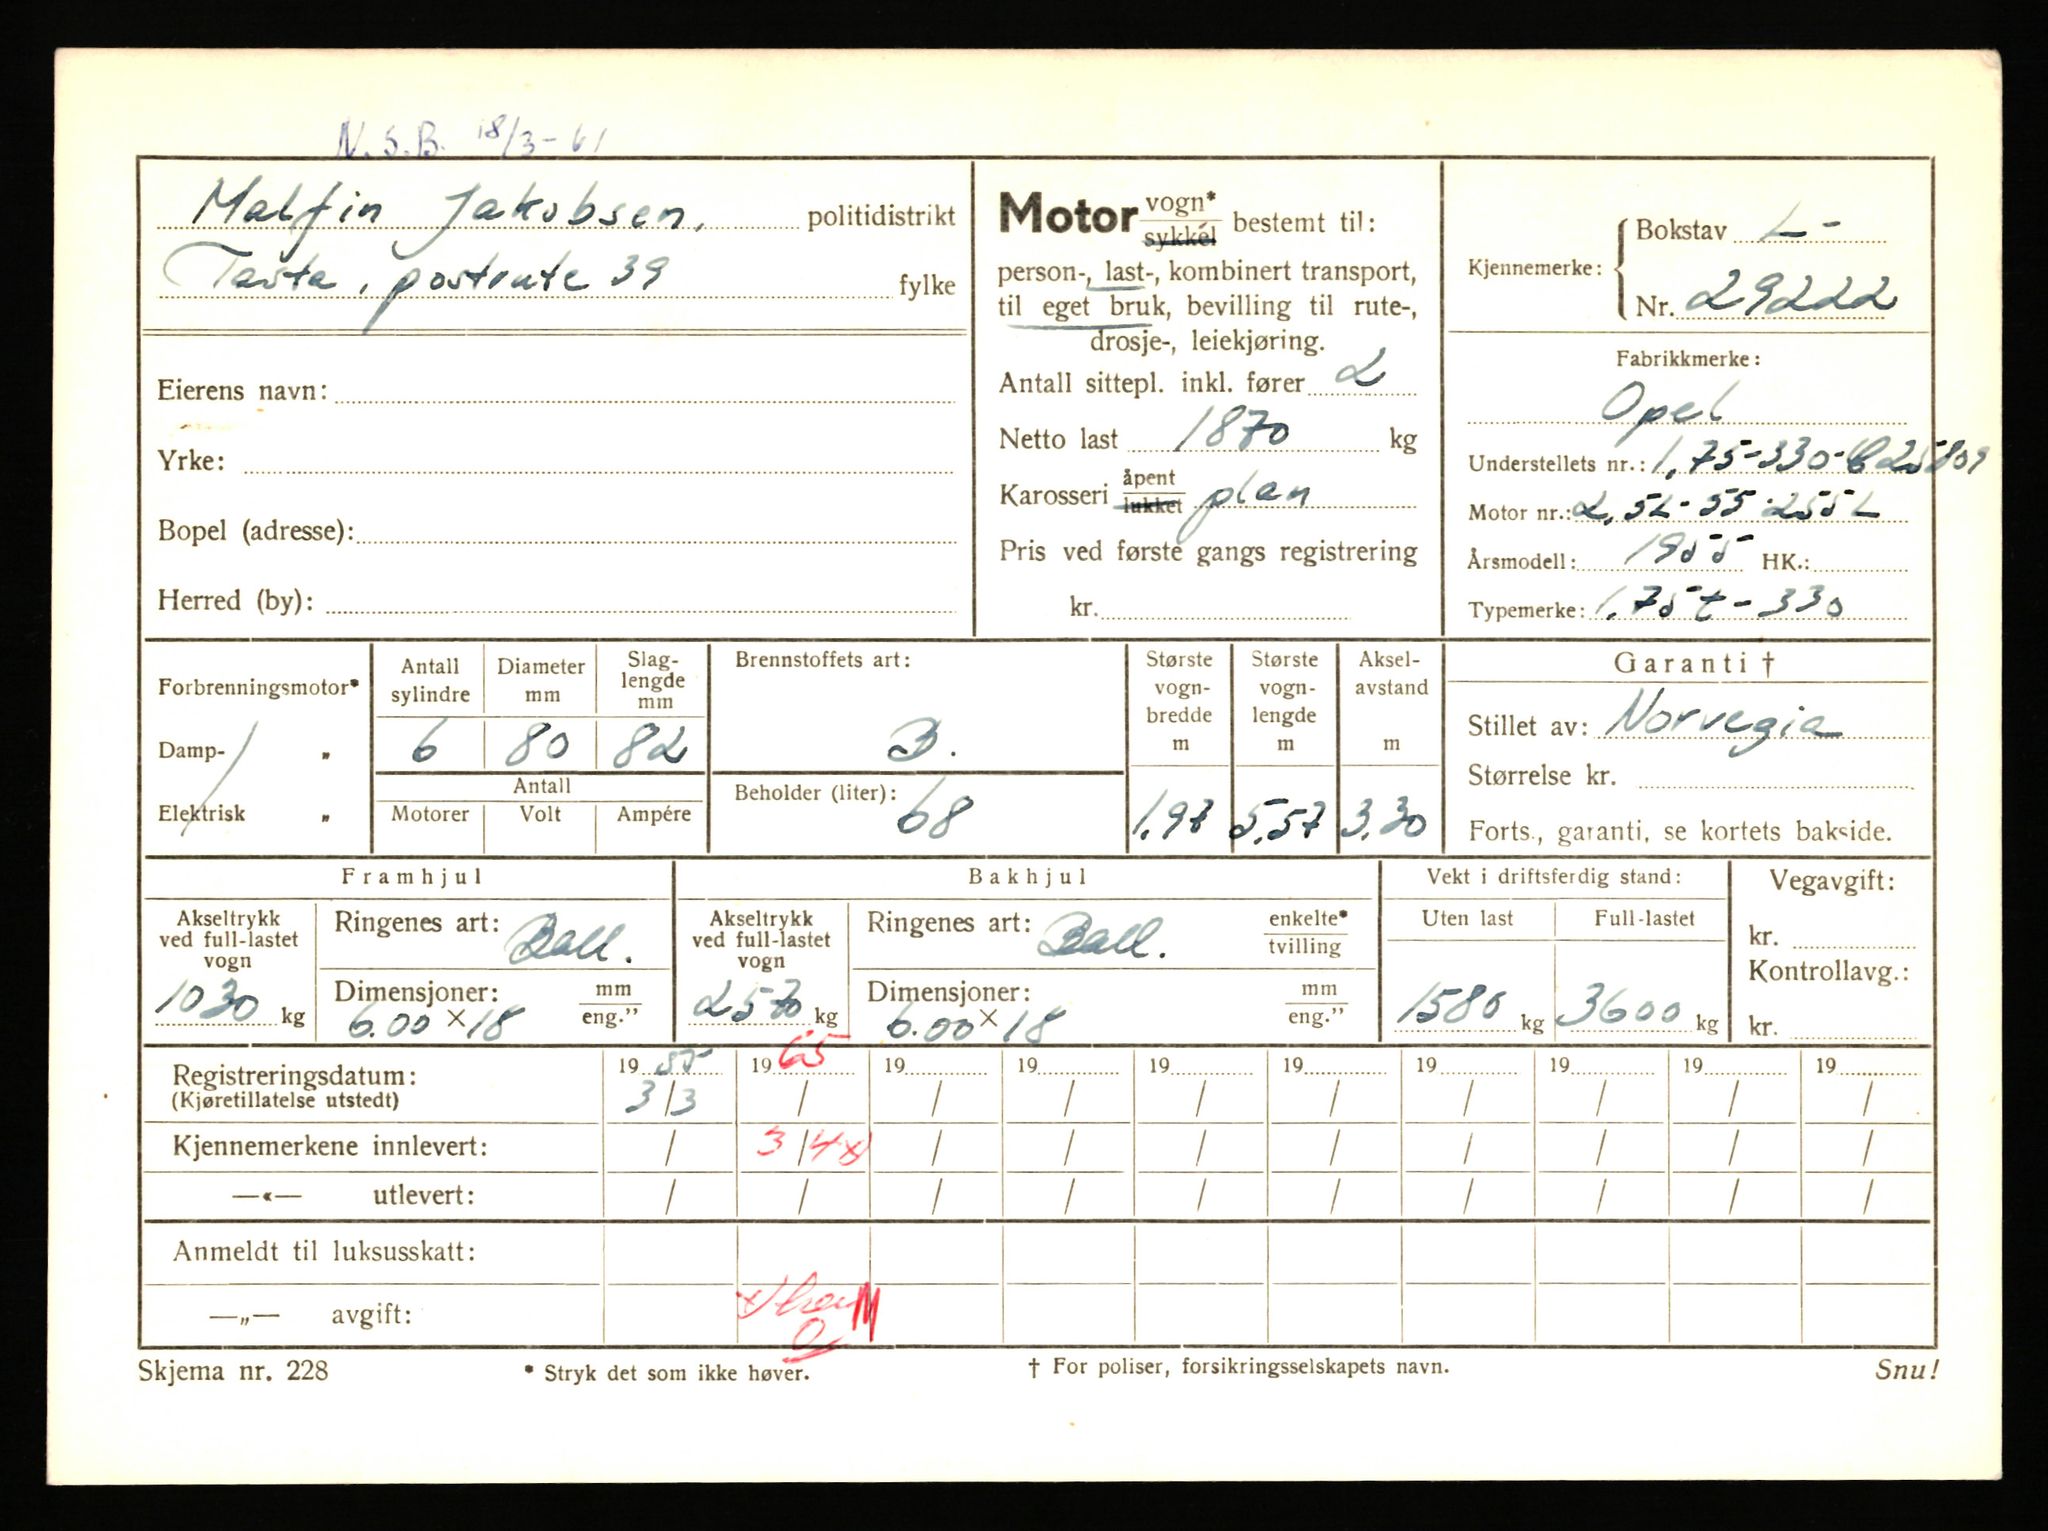 N.S.B. 18/3-61
Malfin Jakobsen, politidistrikt
Tasta, postrute 39 fylke
Eierens navn:
Yrke:
Bopel (adresse):
Herred (by):
Motor vogn* sykkel bestemt til:
person-, last-, kombinert transport,
til eget bruk, bevilling til rute-,
drosje-, leiekjøring.
Antall sittepl. inkl. fører 2
Netto last 1870 kg
Karosseri åpent lukket plan
Pris ved første gangs registrering
kr.
Kjennemerke: Bokstav L-
Nr. 29222
Fabrikkmerke:
Opel
Understellets nr.: 1,75-330-625809
Motor nr.: 2,5L-55-255L
Årsmodell: 1955 HK.:
Typemerke: 1,75t-330
Forbrenningsmotor*
Damp- „
Elektrisk „
Antall sylindre Diameter mm Slag-lengde mm
6 80 82
Antall
Motorer Volt Ampére
Brennstoffets art:
B.
Beholder (liter): 68
Største vogn-bredde m Største vogn-lengde m Aksel-avstand m
1,97 5,57 3,30
Garanti †
Stillet av: Norvegia
Størrelse kr.
Forts., garanti, se kortets bakside.
Framhjul
Akseltrykk ved full-lastet vogn
1030 kg
Ringenes art: Ball.
Dimensjoner: mm eng.”
6.00 × 18
Bakhjul
Akseltrykk ved full-lastet vogn
2570 kg
Ringenes art: Ball. enkelte* tvilling
Dimensjoner: mm eng.”
6.00 × 18
Vekt i driftsferdig stand:
Uten last Full-lastet
1580 kg 3600 kg
Vegavgift:
kr.
Kontrollavg.:
kr.
Registreringsdatum: 19 55 19 65 19 19 19 19 19 19 19 19
(Kjøretillatelse utstedt) 3/3 / / / / / / / / /
Kjennemerkene innlevert: / 3/4 x) / / / / / / / /
—«— utlevert: / / / / / / / / / /
Anmeldt til luksusskatt:
—„— avgift:
Skjema nr. 228 * Stryk det som ikke høver. † For poliser, forsikringsselskapets navn. Snu!